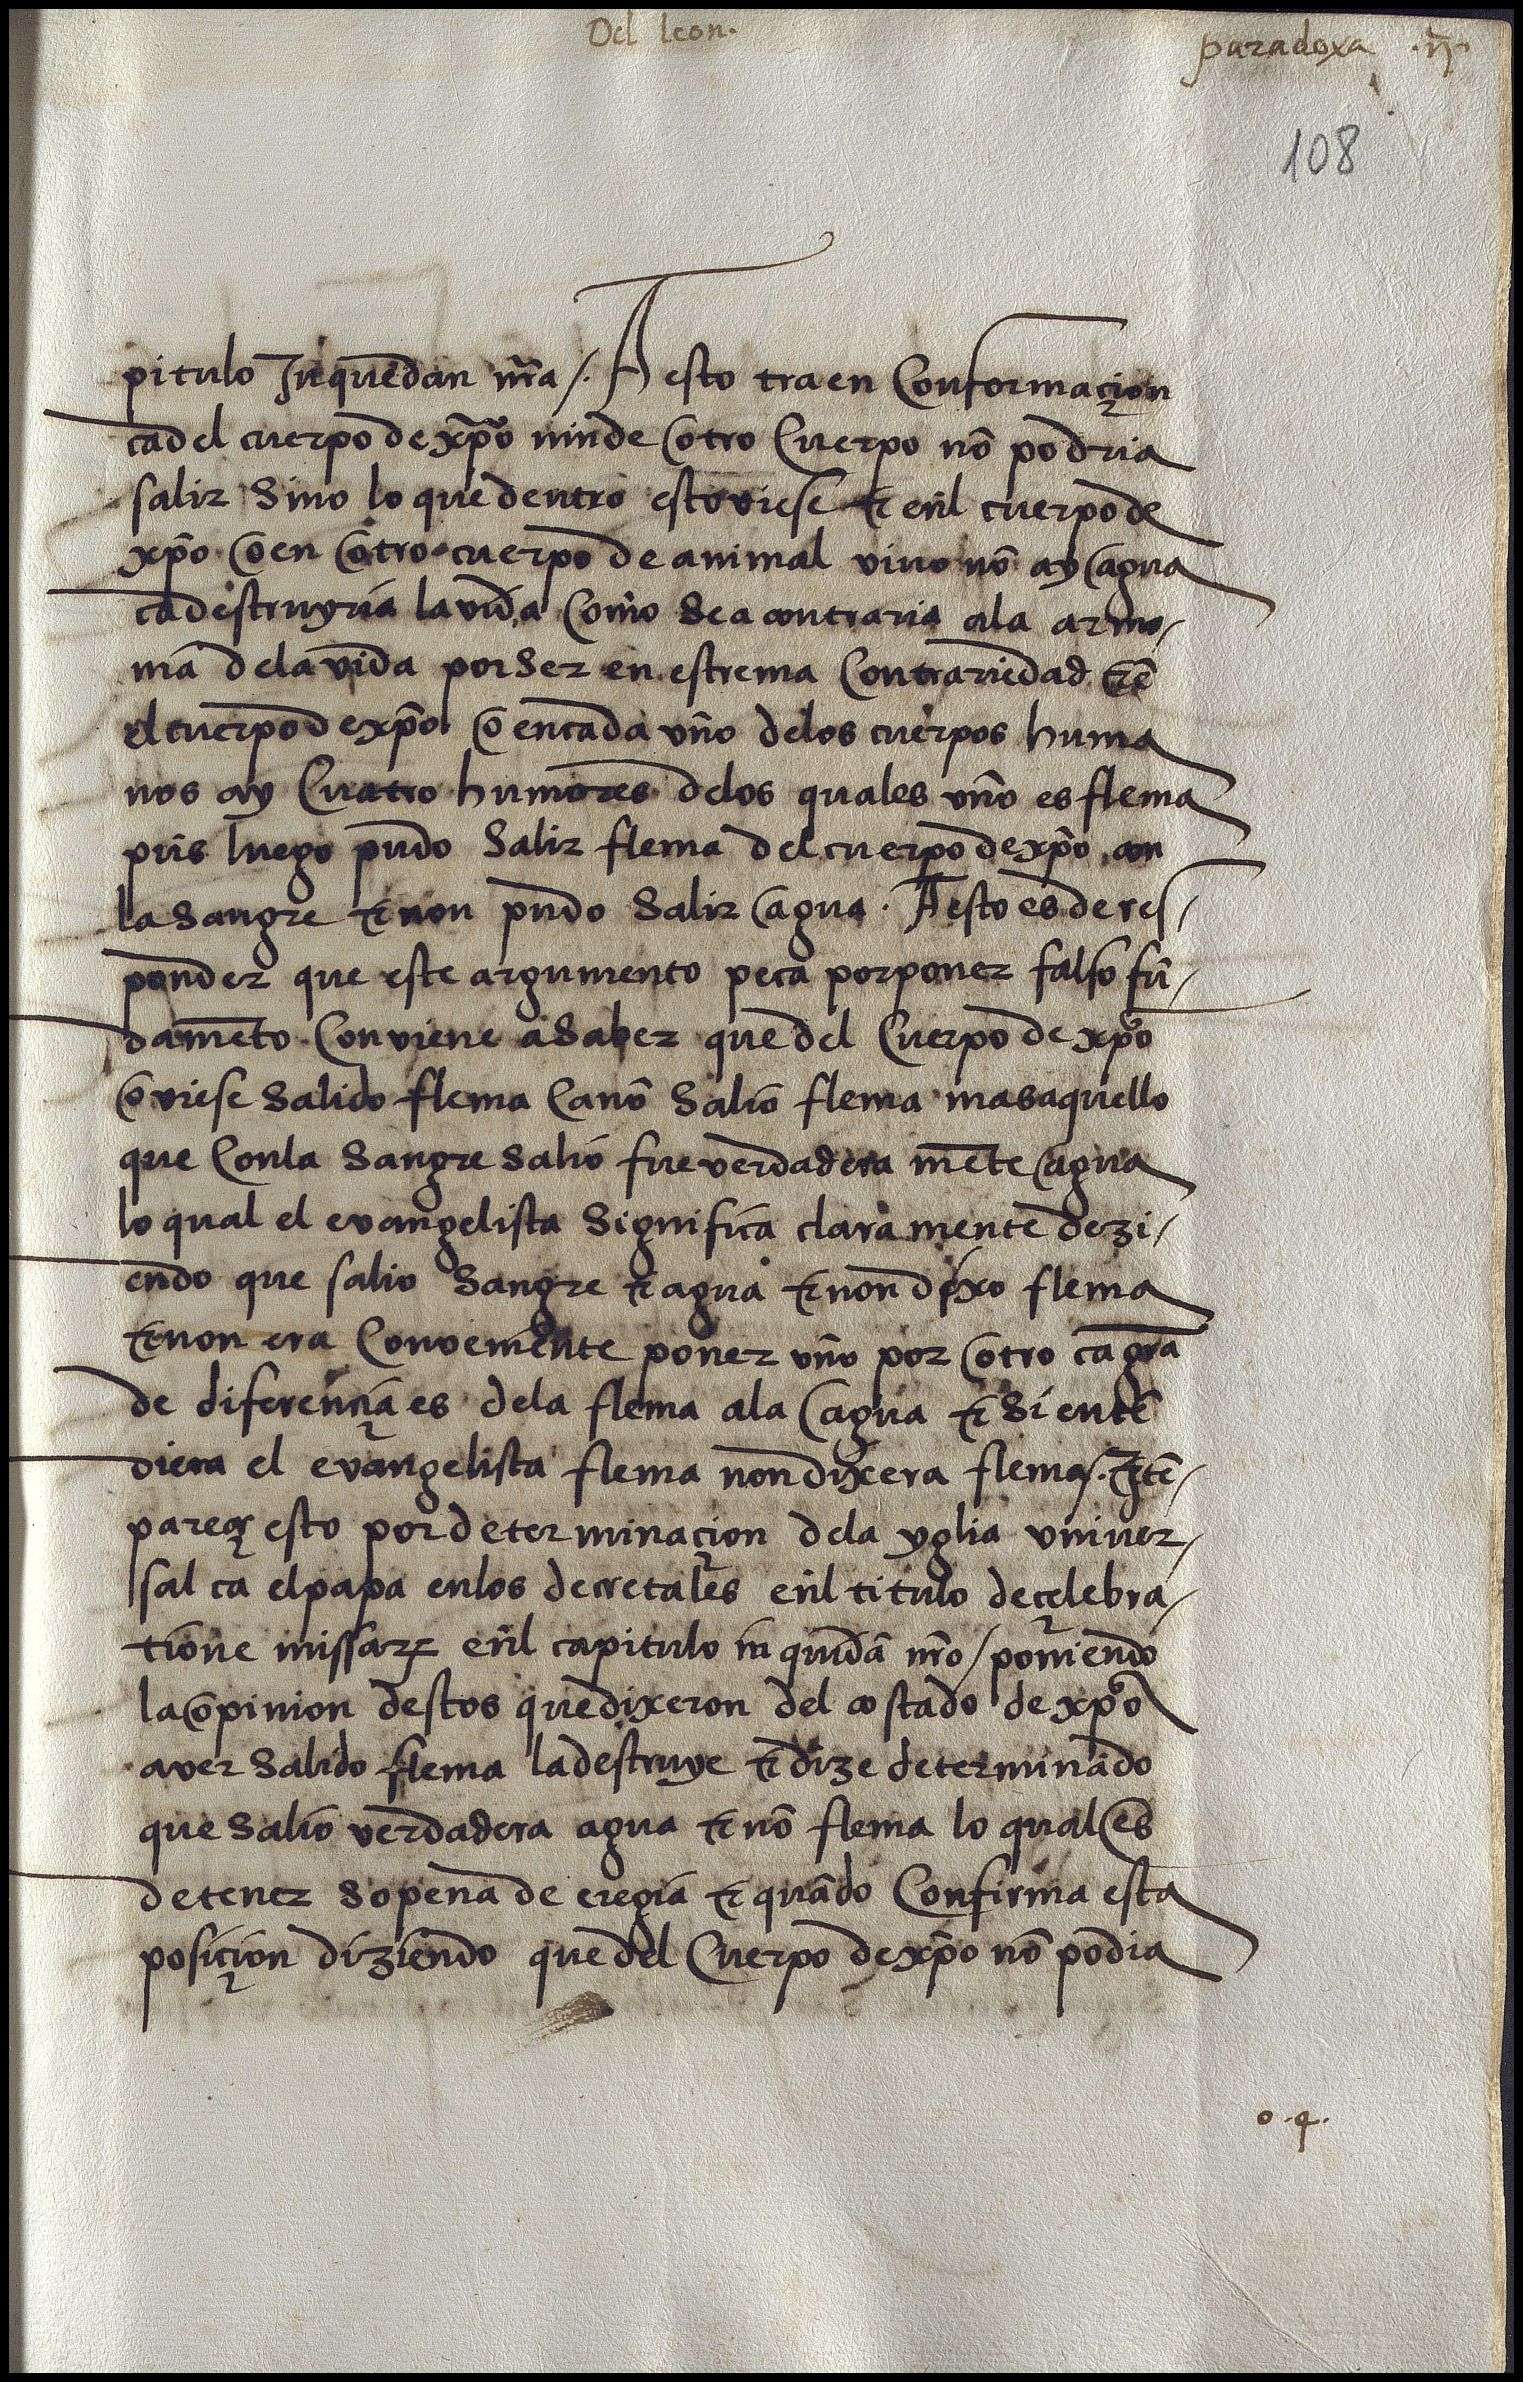 Del leon.
paradoxa .ij.
108
pitulo Inquedan nr̃a /. A esto traen Conformaçion
ca del cuerpo de xp̃o nin de otro Cuerpo nõ podria
salir Sino lo que dentro estoviese & eñl cuerpo de
xp̃o o en otro cuerpo de animal vivo nõ ay agua
ca destruyria la vida Como Sea contraria ala armo/
nia dela vida por Ser en estrema Contrariedad & ẽ
el cuerpo de xp̃o o en cada vño delos cuerpos huma
nos ay Cuatro humores delos quales vño es flema
pũs luego pudo Salir flema del cuerpo de xp̃o con
la Sangre & non pudo Salir agua. A esto es de res/
ponder que este argumento peca por poner falso fũ/
damẽto Conviene a Saber que del Cuerpo de xp̃o
oviese Salido flema Ca nõ Salio flema mas aquello
que Con la Sangre Salio fue verdadera mẽte agua
lo qual el evangelista Significa clara mente dezi/
endo que salio Sangre & agua & non dixo flema
& non era Conveniente poner vño por otro ca grã
de diferençia es dela flema ala agua & Si entẽ
diera el evangelista flema non dixera flema /. Itẽ/
pareçe esto por determinaçion dela yglia vniver/
sal ca el papa en los decretales eñl titulo de çelebra/
tione missarꝝ eñl capitulo in quidã nr̃o / poniendo
la opinion destos que dixeron del costado de xp̃o
aver Salido flema la destruye & dize determinãdo
que Salio verdadera agua & nõ flema lo qual es
de tener So pena de eregia & quãdo Confirma esta
posiçion diziendo que del Cuerpo de xp̃o nõ podia
o .4.